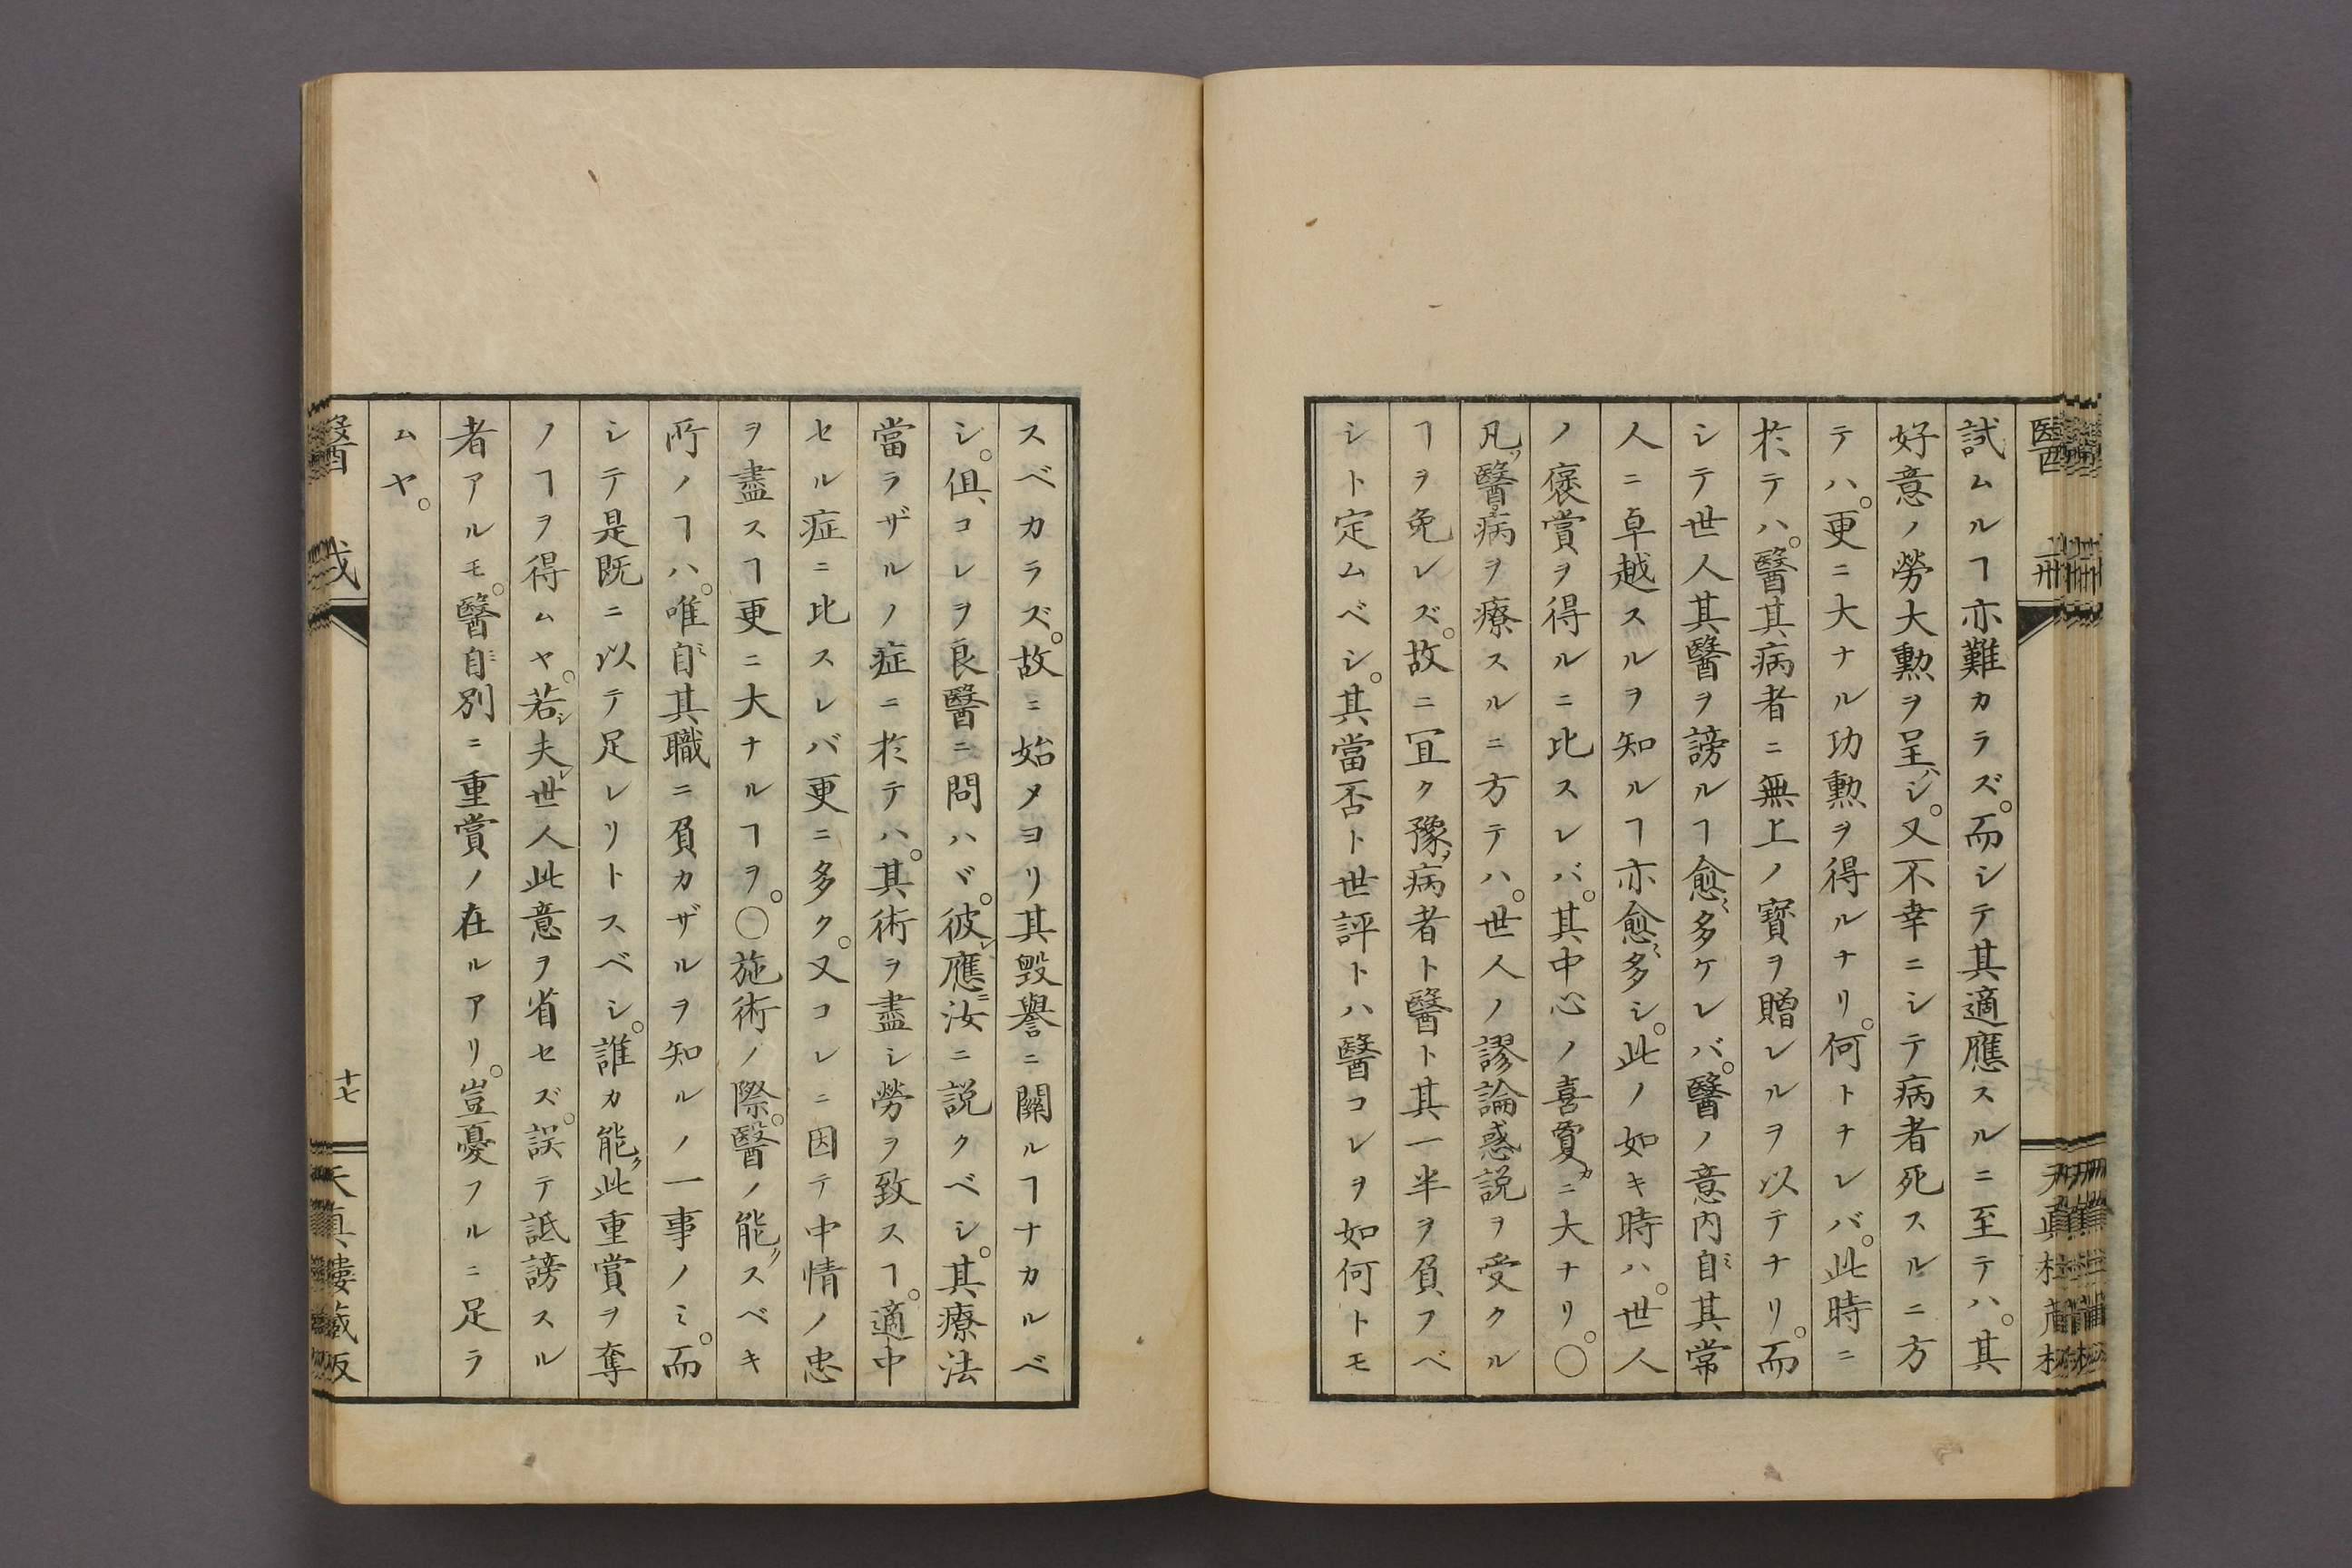 試ムルヿ亦難カラズ。而シテ其適應スルニ至テハ。其
好意ノ勞大勲ヲ呈シ。又不幸ニシテ病者死スルニ方
テハ。更ニ大ナル功勲ヲ得ルナリ。何トナレバ。此時ニ
於テハ。醫其病者ニ無上ノ寳ヲ贈レルヲ以テナリ。而
シテ世人其醫ヲ謗ルヿ愈〻多ケレバ。醫ノ意内自ミ其常
人ニ卓越スルヲ知ルヿ亦愈〻多シ。此ノ如キ時ハ。世人
ノ褒賞ヲ得ルニ比スレバ。其中心ノ喜實カニ大ナリ。〇
凡ソ醫病ヲ療スルニ方テハ。世人ノ謬論惑説ヲ受クル
ヿヲ免レズ。故ニ冝ク豫メ病者ト醫ト其一半ヲ負フベ
シト定ムベシ。其當否ト世評トハ醫コレヲ如何トモ
スベカラズ。故ニ始メヨリ其毀譽ニ關ルヿナカルベ
シ。但、コレヲ良醫ニ問ハヾ。彼レ應ニ汝ニ説クベシ。其療法
當ラザルノ症ニ於テハ。其術ヲ盡シ勞ヲ致スヿ。適中
セル症ニ比スレバ更ニ多ク。又コレニ因テ中情ノ忠
ヲ盡スヿ更ニ大ナルヿヲ。〇施術ノ際。醫ノ能クスベキ
所ノヿハ。唯自ミ其職ニ負カザルヲ知ルノ一事ノミ。而
シテ是既ニ以テ足レリトスベシ。誰カ能ク此重賞ヲ奪
ノヿヲ得ムヤ。若シ夫レ世人此意ヲ省セズ。誤テ詆謗スル
者アルモ。醫自ミ別ニ重賞ノ在ルアリ。豈憂フルニ足ラ
ムヤ。
醫戒
十七
天真樓蔵版